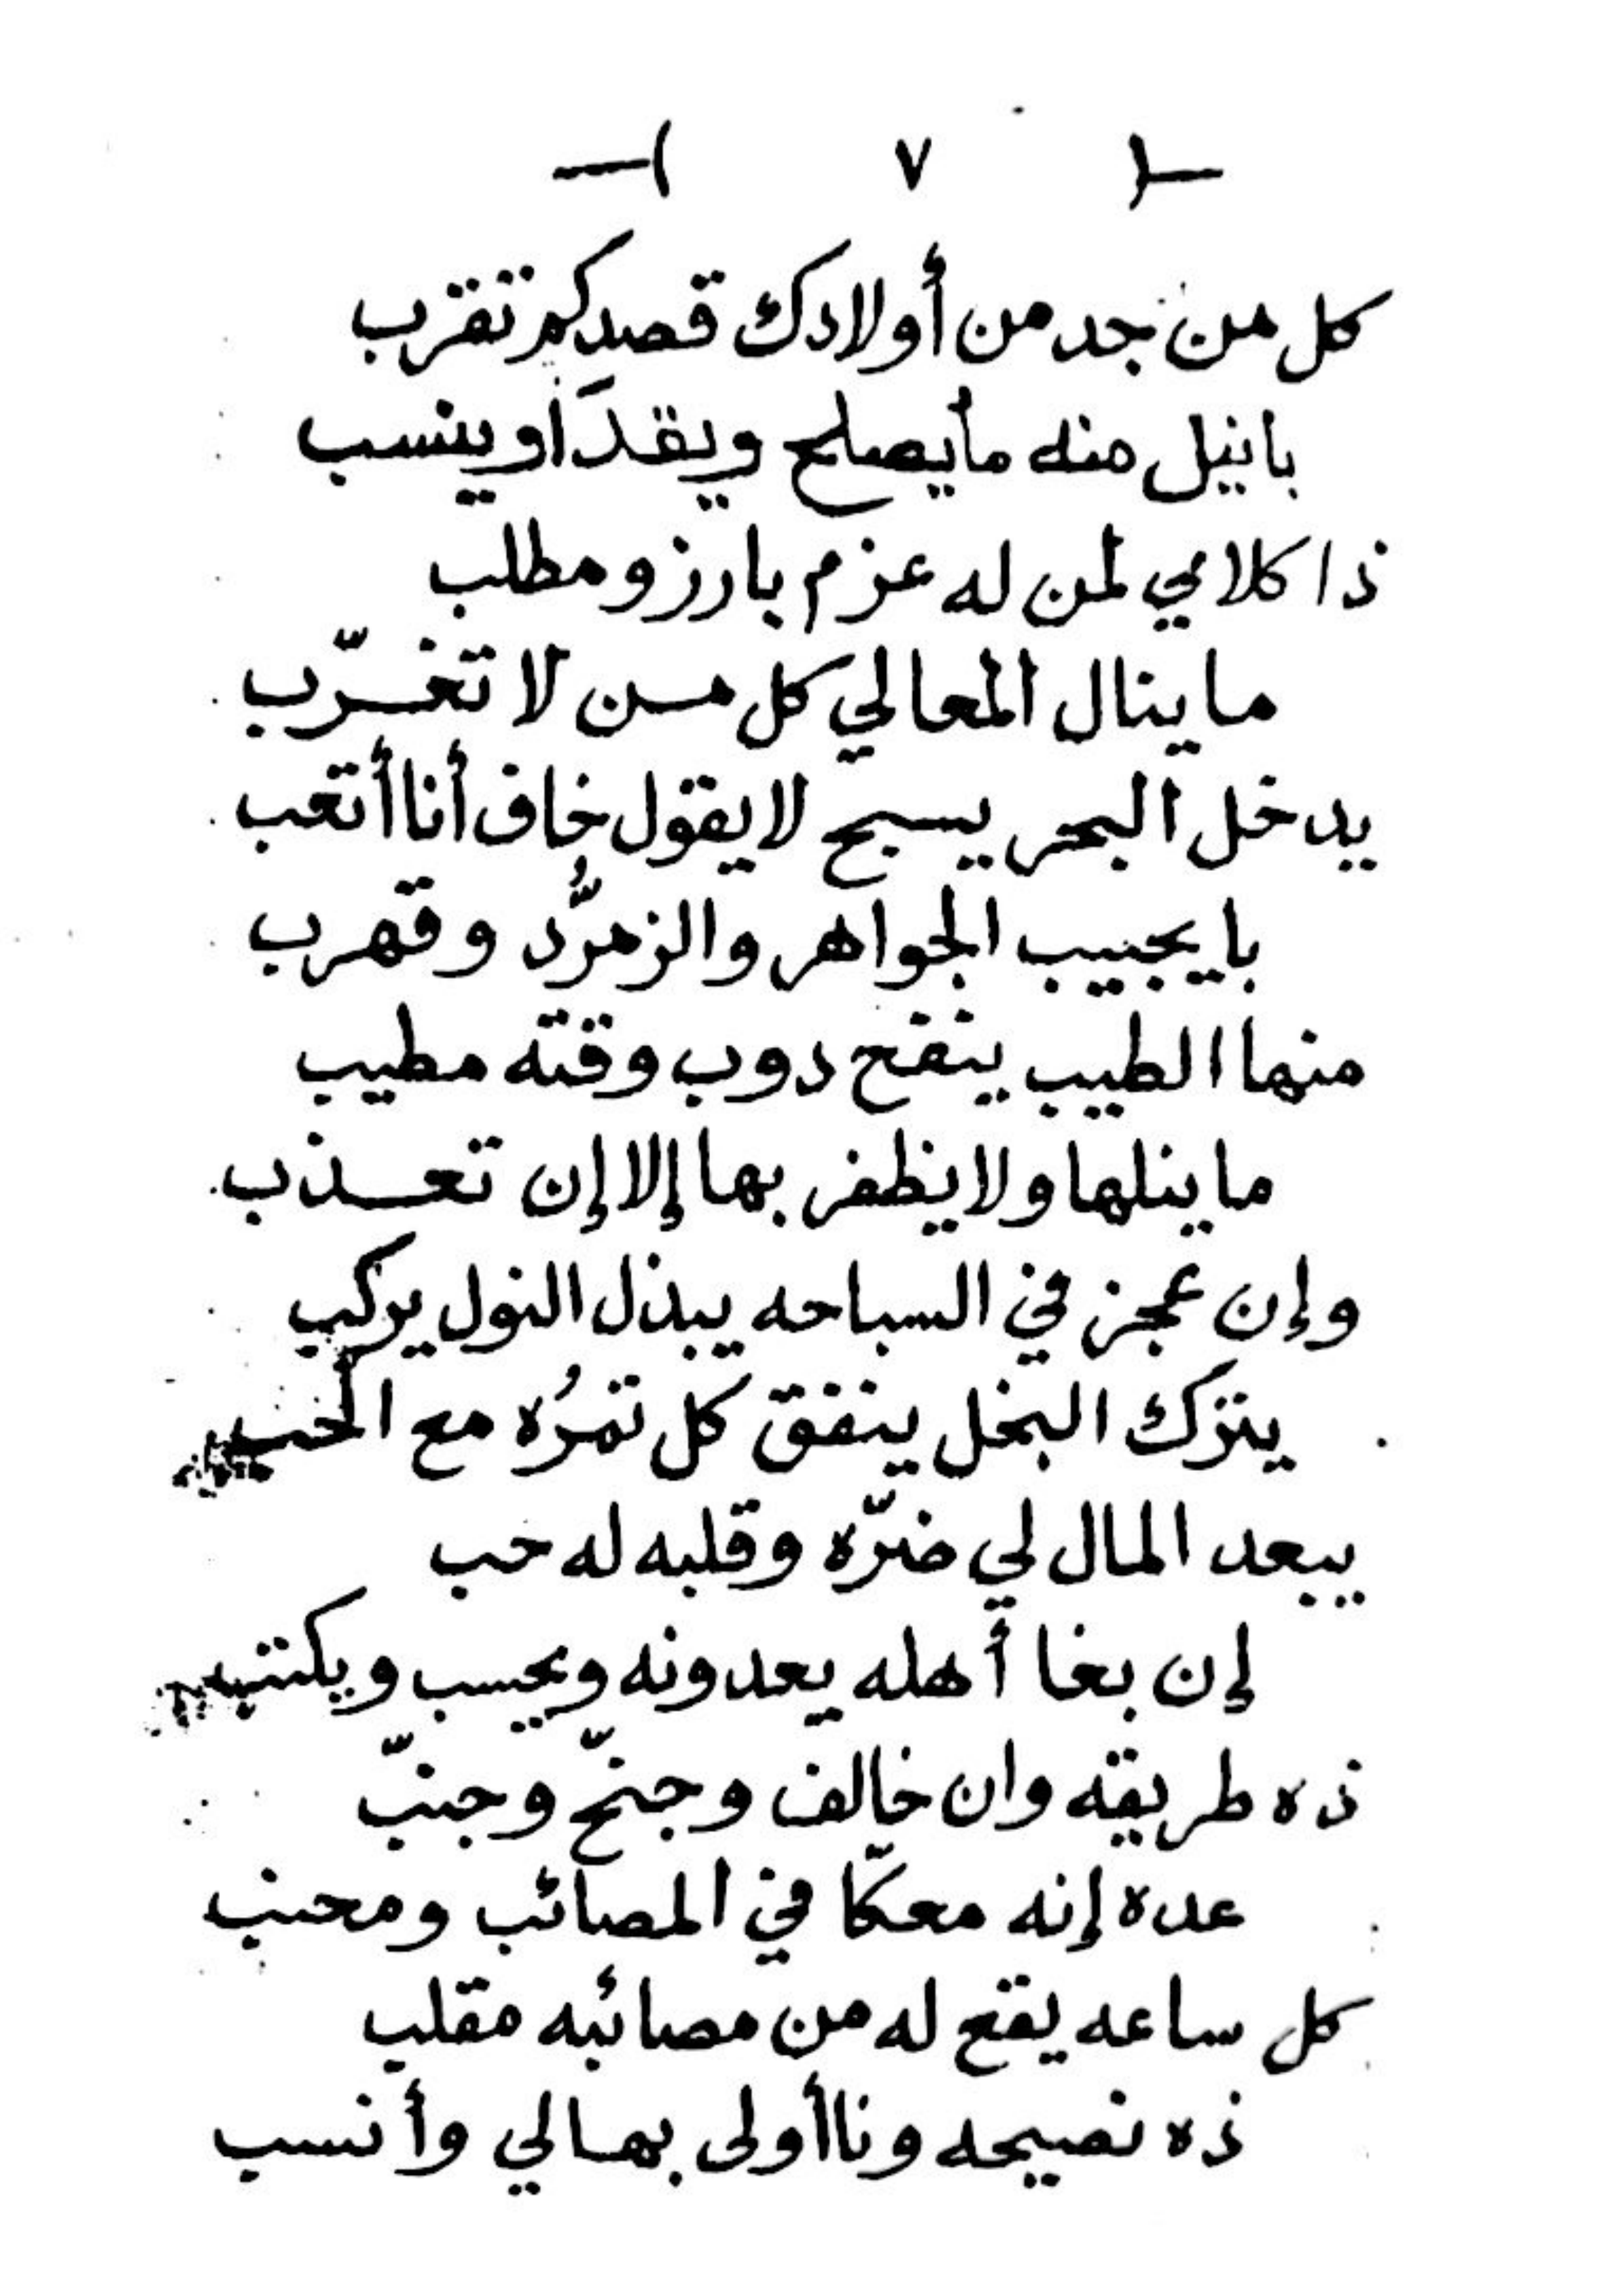 ٧
كل من جد من أولادك قصدكم تقرب
بانيل منه مايصلح ويقدَا او ينسب
ذا كلامي لمن له عزم بارز ومطلب
ما ينال المعالي كل من لا تغرّب
يدخل البحر يسبح لا يقول خاف أنا أتعب
با يجيب الجواهر والزمرُّد وقهرب
منها الطيب ينفح دوب وقته مطيب
ما ينلها ولا يظفر بها إلا إن تعذب
وإن عجز في السباحه يبذل النول يركب
يترك البخل ينفق كل تمرُه مع الحب
يبعد المال لي ضرّه وقلبه له حب
إن بغا أهله يعدونه ويحسب ويكتب
ذه طريقه وان خالف وجنّح وجنبّ
عده إنه معكّا في المصائب ومحنب
كل ساعه يقع له من مصائبه مقلب
ذه نصيحه ونا أولى بها لي وأنسب